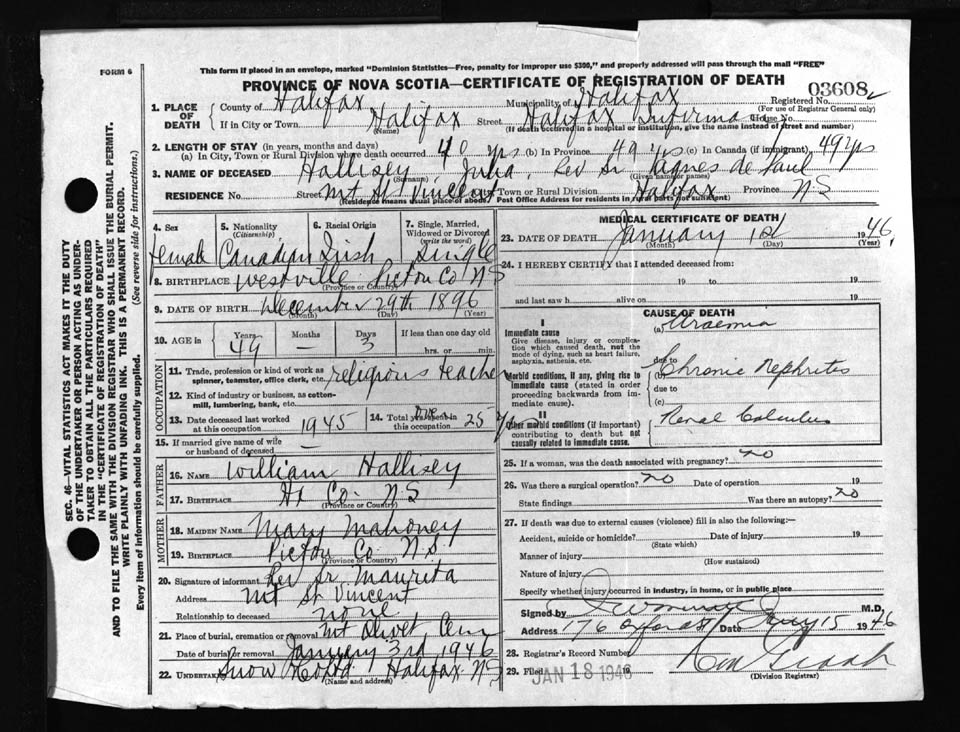 FORM 6
This form if placed in an envelope, marked "Dominion Statistics—Free, penalty for improper use $300," and properly addressed will pass through the mail "FREE"
PROVINCE OF NOVA SCOTIA—CERTIFICATE OF REGISTRATION OF DEATH
03608
1. PLACE OF DEATH County of Halifax Municipality of Halifax Registered No.
(For use of Registrar General only)
If in City or Town Halifax (Name) Street Halifax Infirmary House No.
(If death occurred in a hospital or institution, give the name instead of street and number)
2. LENGTH OF STAY (in years, months and days)
(a) In City, Town or Rural Division where death occurred 40 yrs (b) In Province 49 yrs (c) In Canada (if immigrant) 49 yrs
3. NAME OF DECEASED Hallisey, Julia, Rev Sr Agnes de Paul
(Surname) (Given name or names)
RESIDENCE No. Street Mt St Vincent City, Town or Rural Division Halifax Province N.S
(Residence means usual place of abode. Post Office Address for residence in rural parts not sufficient)
4. Sex 5. Nationality (Citizenship) 6. Racial Origin 7. Single, Married, Widowed or Divorced (write the word)
Female Canadian Irish Single
8. BIRTHPLACE Westville Pictou Co N S
(Province or Country)
9. DATE OF BIRTH December 29th 1896
(Month) (Day) (Year)
10. AGE in Years Months Days If less than one day old
49 — 3 hrs. or min.
OCCUPATION
11. Trade, profession or kind of work as spinner, teamster, office clerk, etc. religious teacher
12. Kind of industry or business, as cotton-mill, lumbering, bank, etc.
13. Date deceased last worked at this occupation 1945
14. Total years spent in this occupation over 25 yrs
15. If married give name of wife or husband of deceased —
FATHER
16. NAME William Hallisey
17. BIRTHPLACE Hx Co. N S
(Province or Country)
MOTHER
18. MAIDEN NAME Mary Mahoney
19. BIRTHPLACE Pictou Co N.S.
(Province or Country)
20. Signature of informant Rev Sr. Maurita
Address Mt St Vincent
Relationship to deceased none
21. Place of burial, cremation or removal Mt Olivet Cem
Date of burial or removal January 3rd, 1946
22. UNDERTAKER Snow & Co Ltd Halifax N S
(Name and address)
MEDICAL CERTIFICATE OF DEATH
23. DATE OF DEATH January 1st 1946
(Month) (Day) (Year)
24. I HEREBY CERTIFY that I attended deceased from:
19 to 19
and last saw h alive on 19
CAUSE OF DEATH
I
Immediate cause
Give disease, injury or complication which caused death, not the mode of dying, such as heart failure, asphyxia, asthenia, etc.
(a) Uraemia
due to
Morbid conditions, if any, giving rise to immediate cause (stated in order proceeding backwards from immediate cause).
(b) Chronic Nephritis
due to
(c)
II
Other morbid conditions (if important) contributing to death but not causally related to immediate cause.
Renal Calculus
25. If a woman, was the death associated with pregnancy? no
26. Was there a surgical operation? no Date of operation 19
State findings Was there an autopsy? no
27. If death was due to external causes (violence) fill in also the following:—
Accident, suicide or homicide? Date of injury 19
(State which)
Manner of injury
(How sustained)
Nature of injury
Specify whether injury occurred in industry, in home, or in public place
Signed by M.D.
Address 176 Oxford St Date Jany 15 1946
28. Registrar's Record Number
29. Filed JAN 18 1946 19
(Division Registrar)
SEC. 46—VITAL STATISTICS ACT MAKES IT THE DUTY OF THE UNDERTAKER OR PERSON ACTING AS UNDERTAKER TO OBTAIN ALL THE PARTICULARS REQUIRED IN THE "CERTIFICATE OF REGISTRATION OF DEATH"
AND TO FILE THE SAME WITH THE DIVISION REGISTRAR WHO SHALL ISSUE THE BURIAL PERMIT.
WRITE PLAINLY WITH UNFADING INK. THIS IS A PERMANENT RECORD.
Every item of information should be carefully supplied. (See reverse side for instructions.)